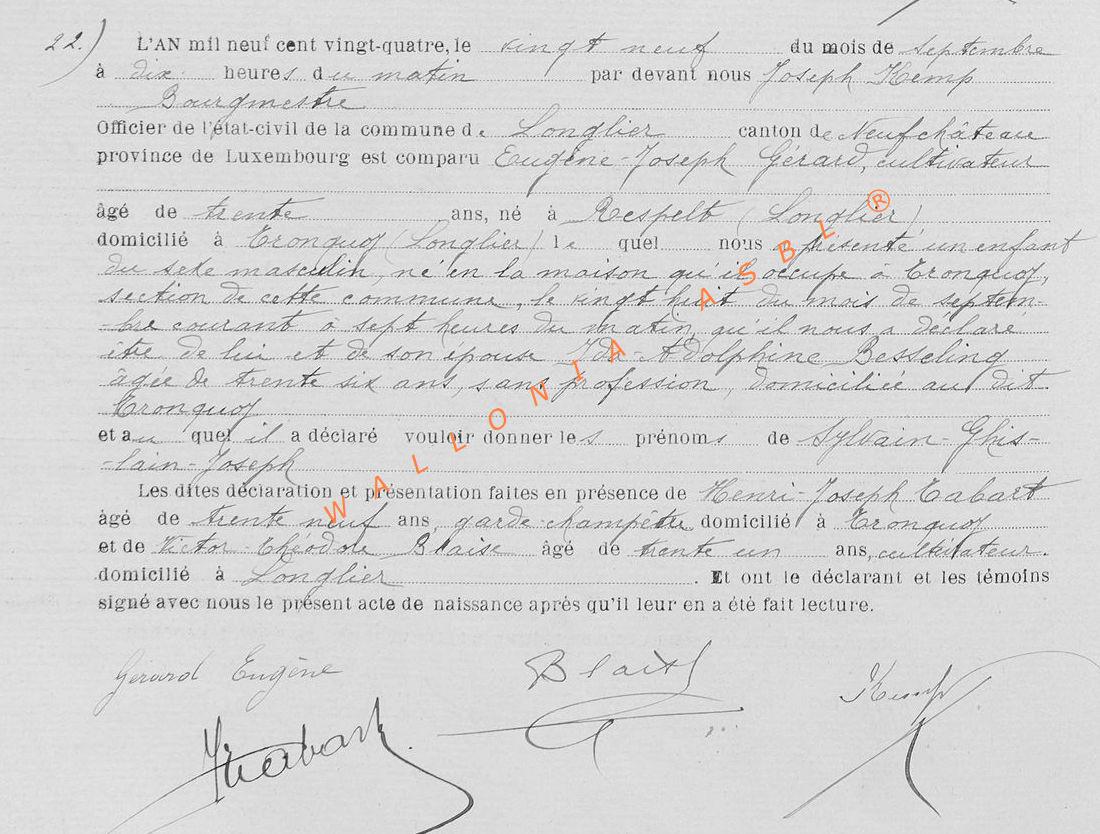 22.) L'AN mil neuf cent vingt-quatre, le vingt neuf du mois de septembre
à dix heures du matin par devant nous Joseph Kemp
Bourgmestre
Officier de l'état-civil de la commune de Longlier canton de Neufchâteau
province de Luxembourg est comparu Eugène-Joseph Gérard, cultivateur
âgé de trente ans, né à Respelt (Longlier)
domicilié à Tronquoy (Longlier) lequel nous a présenté un enfant
du sexe masculin, né en la maison qu'il occupe à Tronquoy,
section de cette commune, le vingt huit du mois de septem-
-bre courant à sept heures du matin, qu'il nous a déclaré
être de lui et de son épouse Ida-Adolphine Besseling
âgée de trente six ans, sans profession, domiciliée au dit
Tronquoy
et au quel il a déclaré vouloir donner les prénoms de Sylvain-Ghis-
-lain-Joseph
Les dites déclaration et présentation faites en présence de Henri-Joseph Tabart
âgé de trente neuf ans, garde-champêtre domicilié à Tronquoy
et de Victor-Théodore Blaise âgé de trente un ans, cultivateur.
domicilié à Longlier. Et ont le déclarant et les témoins
signé avec nous le présent acte de naissance après qu'il leur en a été fait lecture.
Gérard Eugène
Blaise
Kemp
HTabart
WALLONIA ASBL ®